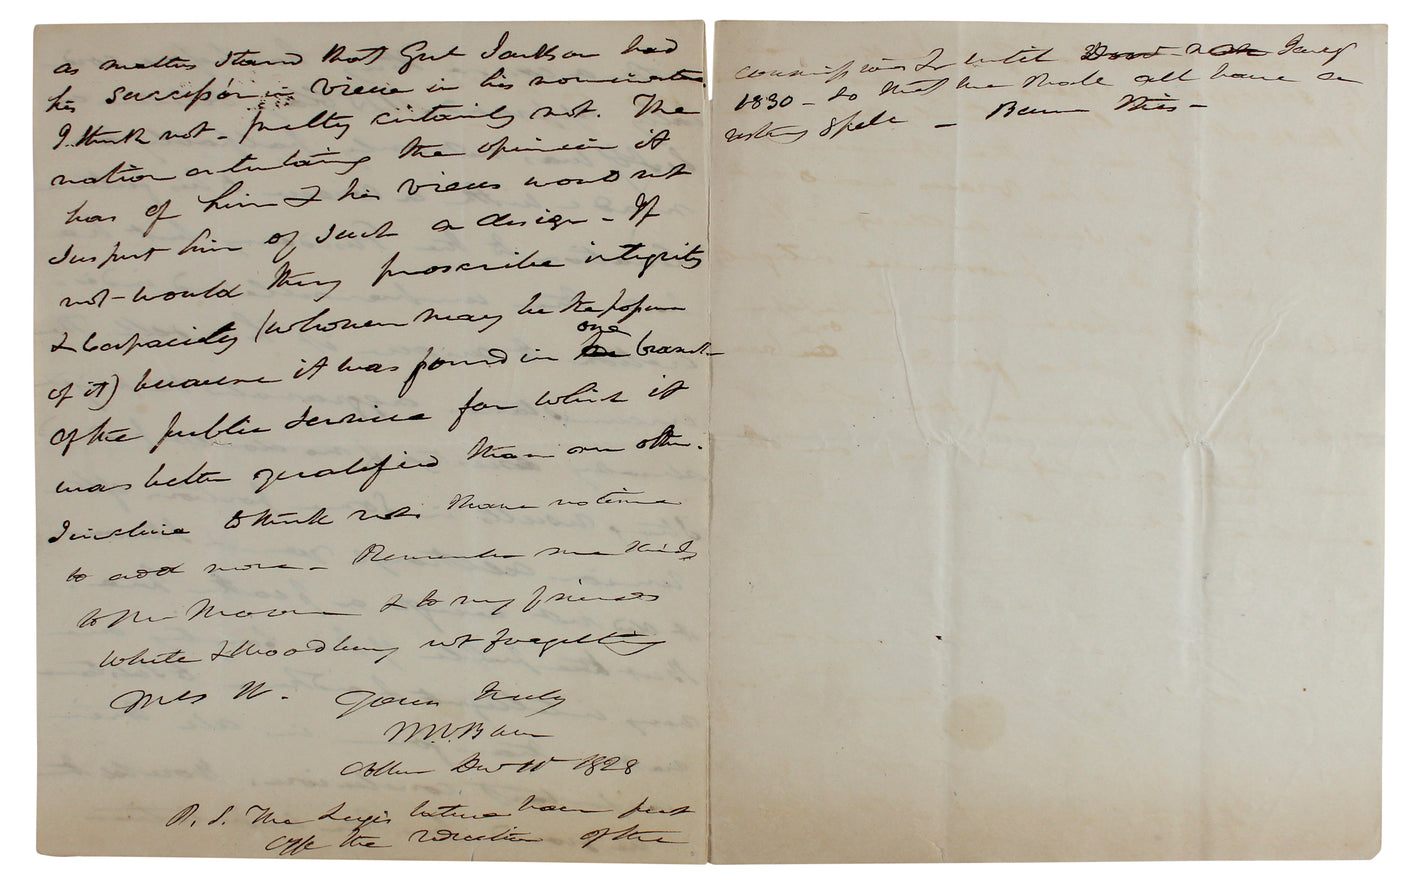 as matters stand that Genl Jackson had
his successor in view in his nominations
I think not - pretty certainly not. The
nation entertaining the opinion it
has of him & his views would not
suspect him of such a design - If
not - would they proscribe integrity
& capacity (whoever may be the
of it) because it was found in one branch
of the public service for which it
was better qualified than any other.
I incline to think not. I have no time
to add more - Remember me kindly
to Mr & to my friends
White & Woodbury not forgetting
Mrs W. Yours truly
M.V. Buren
Dec 1828
P.S. The Legislature have put
off the election of the
until Jany
1830 - so that we shall all have a
spell - Burn this -